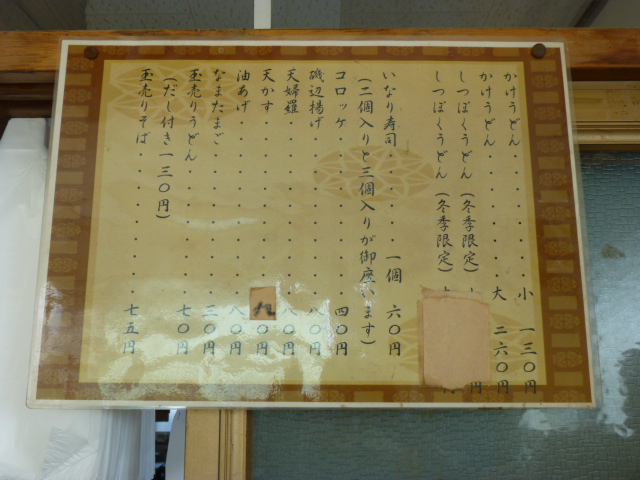 かけうどん・・・・・・・・小 一三〇円
かけうどん・・・・・・・・大 二六〇円
しっぽくうどん（冬季限定） 円
しっぽくうどん（冬季限定）
いなり寿司・・・・・一個 六〇円
（二個入りと三個入りが御座います）
コロッケ・・・・・・・・四〇円
磯辺揚げ・・・・・・・・八〇円
天婦羅・・・・・・・・・八〇円
天かす・・・・・・・・・〇円
油あげ・・・・・・・・・八〇円
なまたまご・・・・・・・三〇円
玉売りうどん・・・・・・七〇円
（だし付き一三〇円）
玉売りそば・・・・・・・七五円